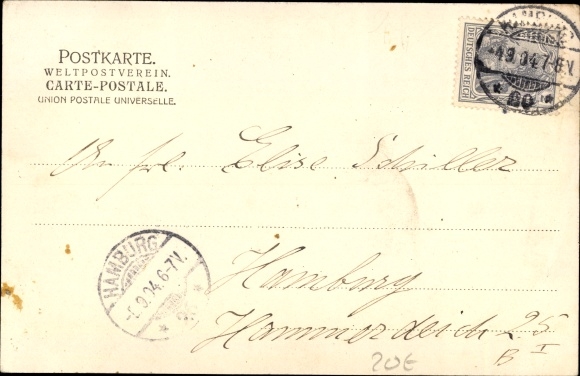 POSTKARTE.
WELTPOSTVEREIN.
CARTE-POSTALE.
UNION POSTALE UNIVERSELLE.
DEUTSCHES REICH
HAMBURG
-4.9.04.7-8V.
* 60 *
An Frl. Elise Schiller
HAMBURG
.9.04.6-7V.
Hamburg
Hammerdeich 25
B I
20€